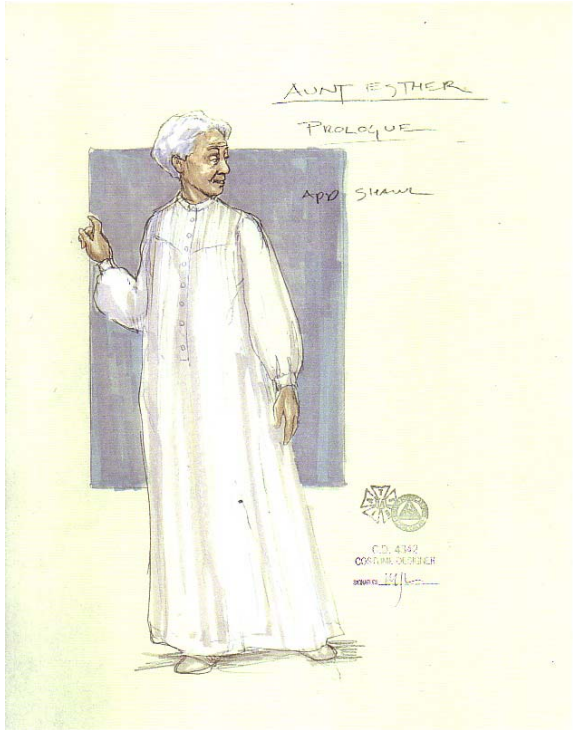 AUNT ESTHER
PROLOGUE
ADD SHAWL
C.D. 4342
COSTUME DESIGNER